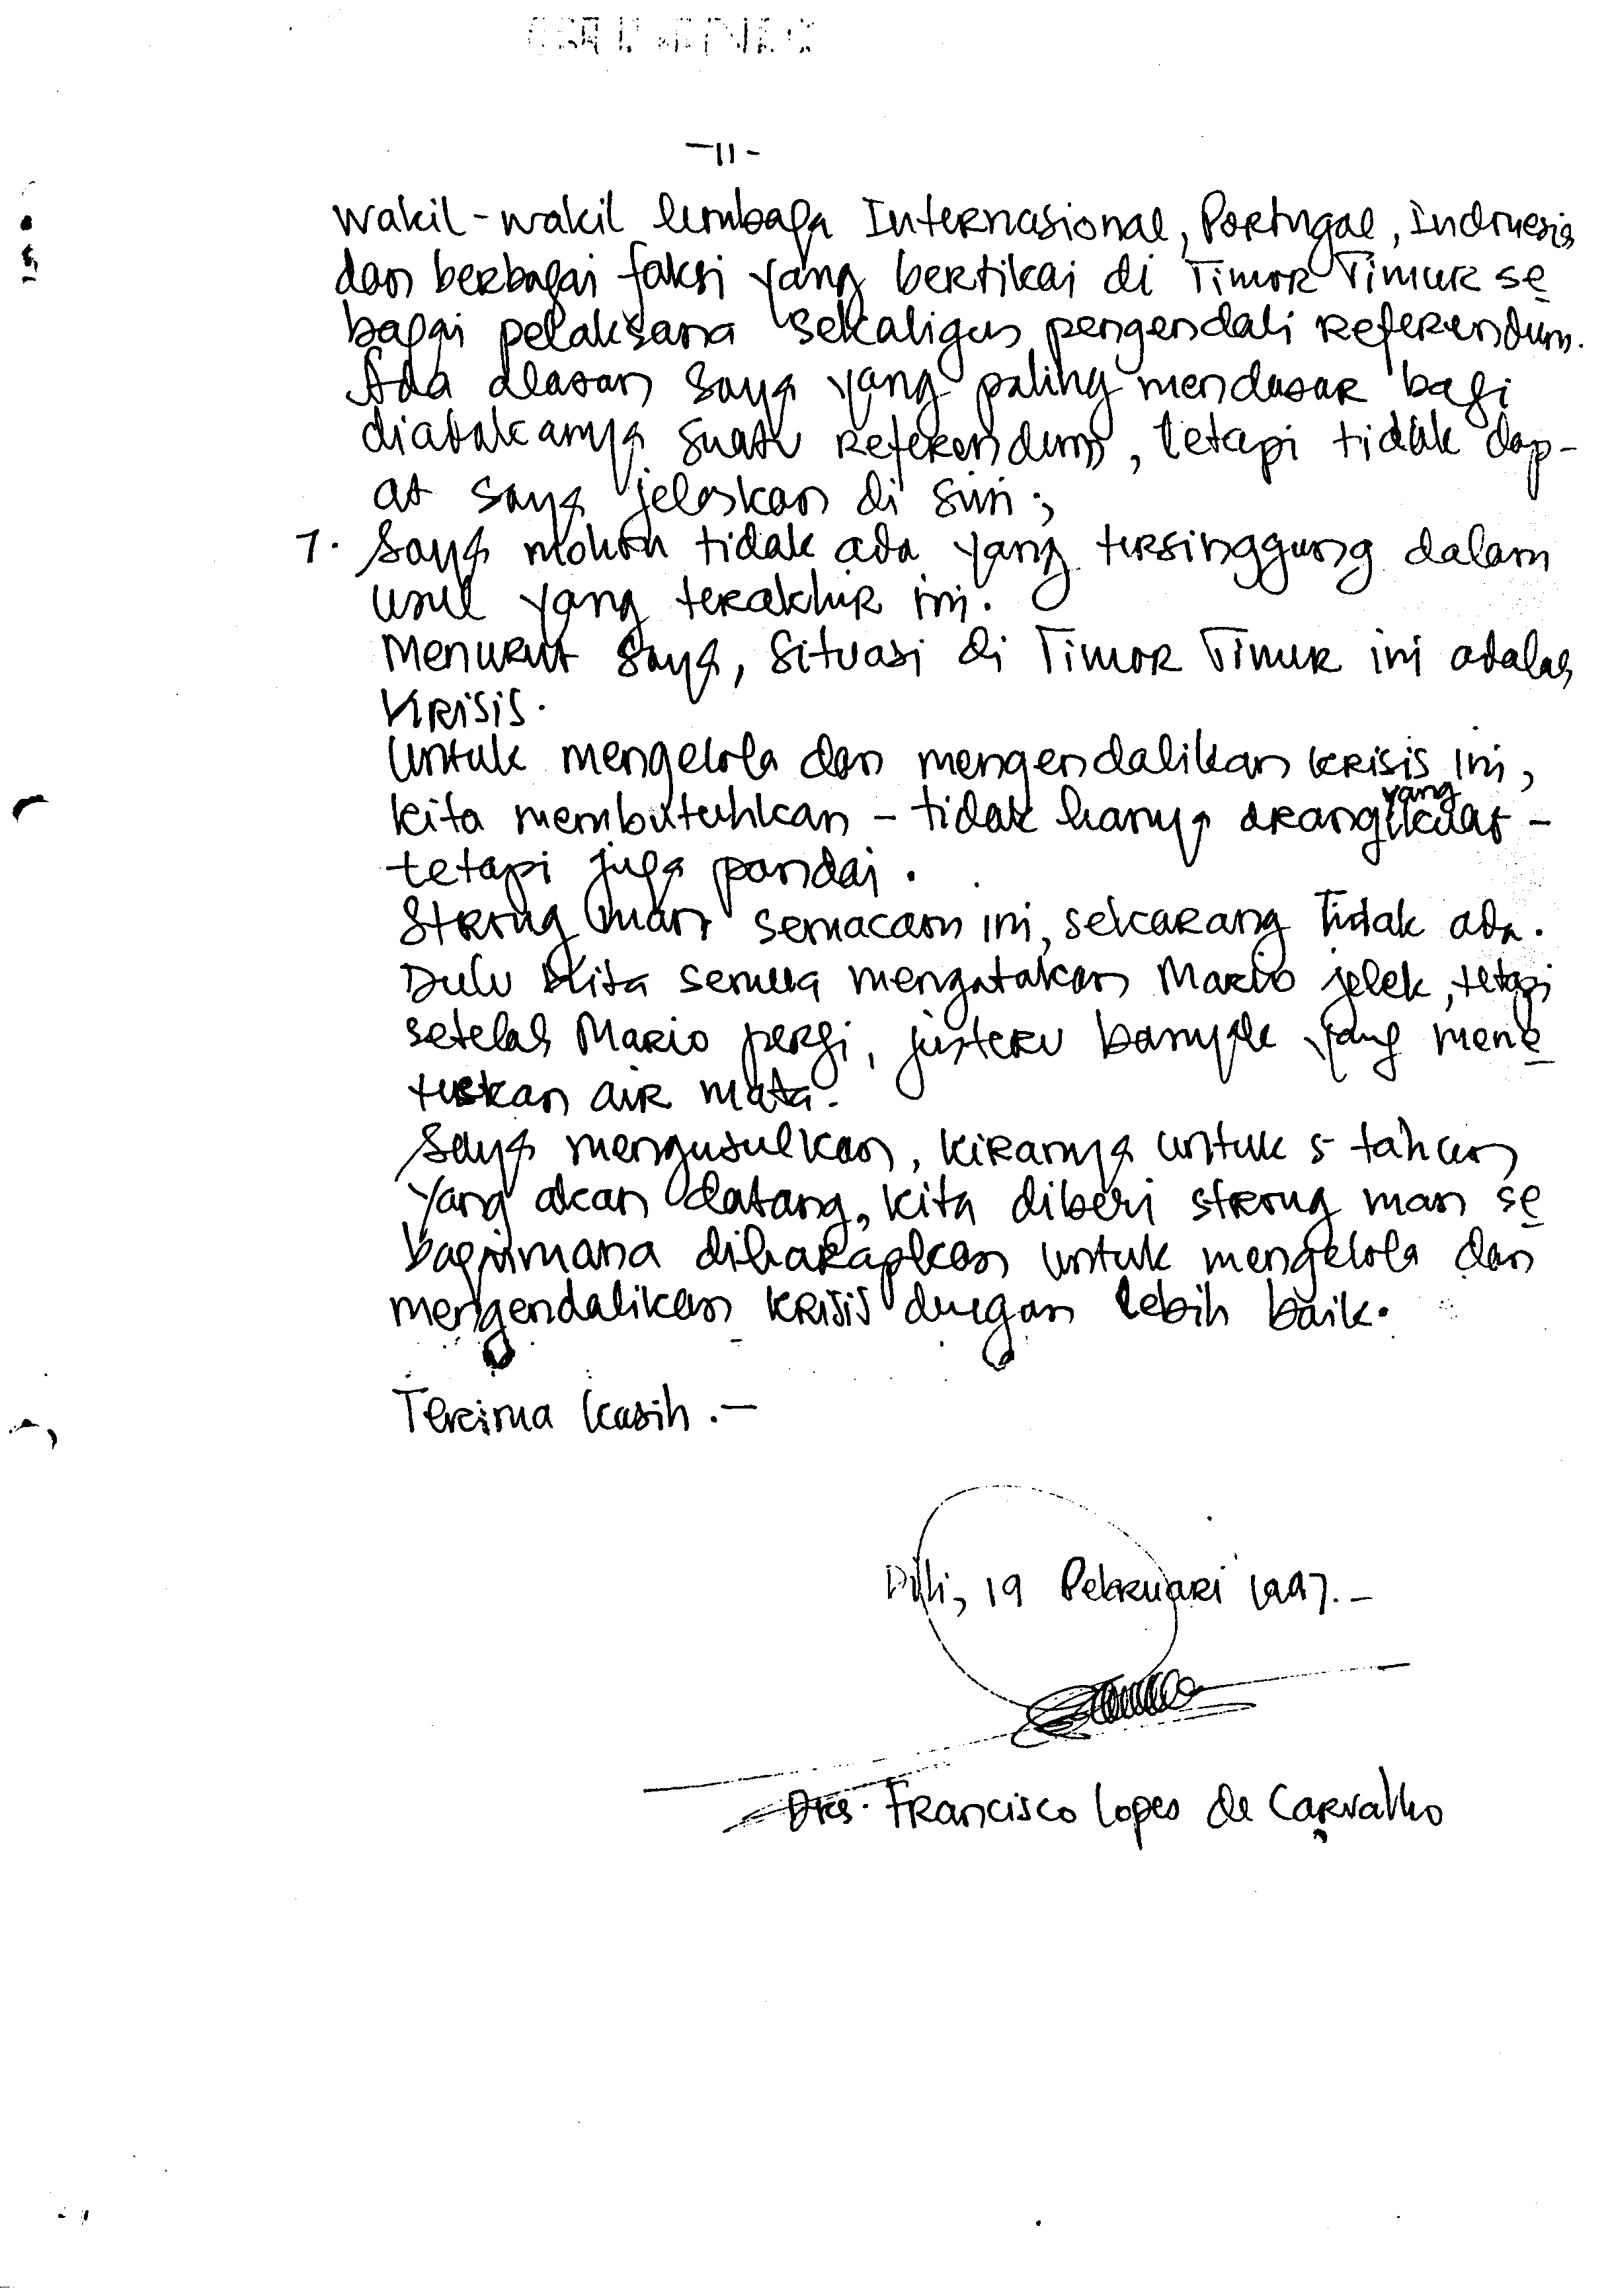 -11-
wakil-wakil lembaga Internasional, Portugal, Indonesia
dan berbagai faksi yang bertikai di Timor Timur se
bagai pelaksana sekaligus pengendali referendum.
Ada alasan saya yang paling mendasar bagi
diadakannya suatu referendum, tetapi tidak dap-
at saya jelaskan di sini;
7. Saya mohon tidak ada yang tersinggung dalam
usul yang terakhir ini.
Menurut saya, situasi di Timor Timur ini adalah
Krisis.
Untuk mengelola dan mengendalikan krisis ini,
kita membutuhkan - tidak hanya orang yang kuat -
tetapi juga pandai.
Strong man semacam ini, sekarang tidak ada.
Dulu kita semua mengatakan Mario jelek, tetapi
setelah Mario pergi, justeru banyak yang mene
teskan air mata.
Saya mengusulkan, kiranya untuk 5 tahun
yang akan datang, kita diberi strong man se
bagaimana diharapkan untuk mengelola dan
mengendalikan krisis dengan lebih baik.
Terima kasih.-
Dili, 19 Pebruari 1997.-
Drs. Francisco Lopes de Carvalho